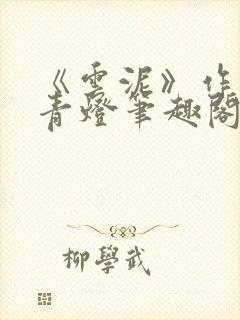 《雲泥》作
青燈筆趣閣
柳學武